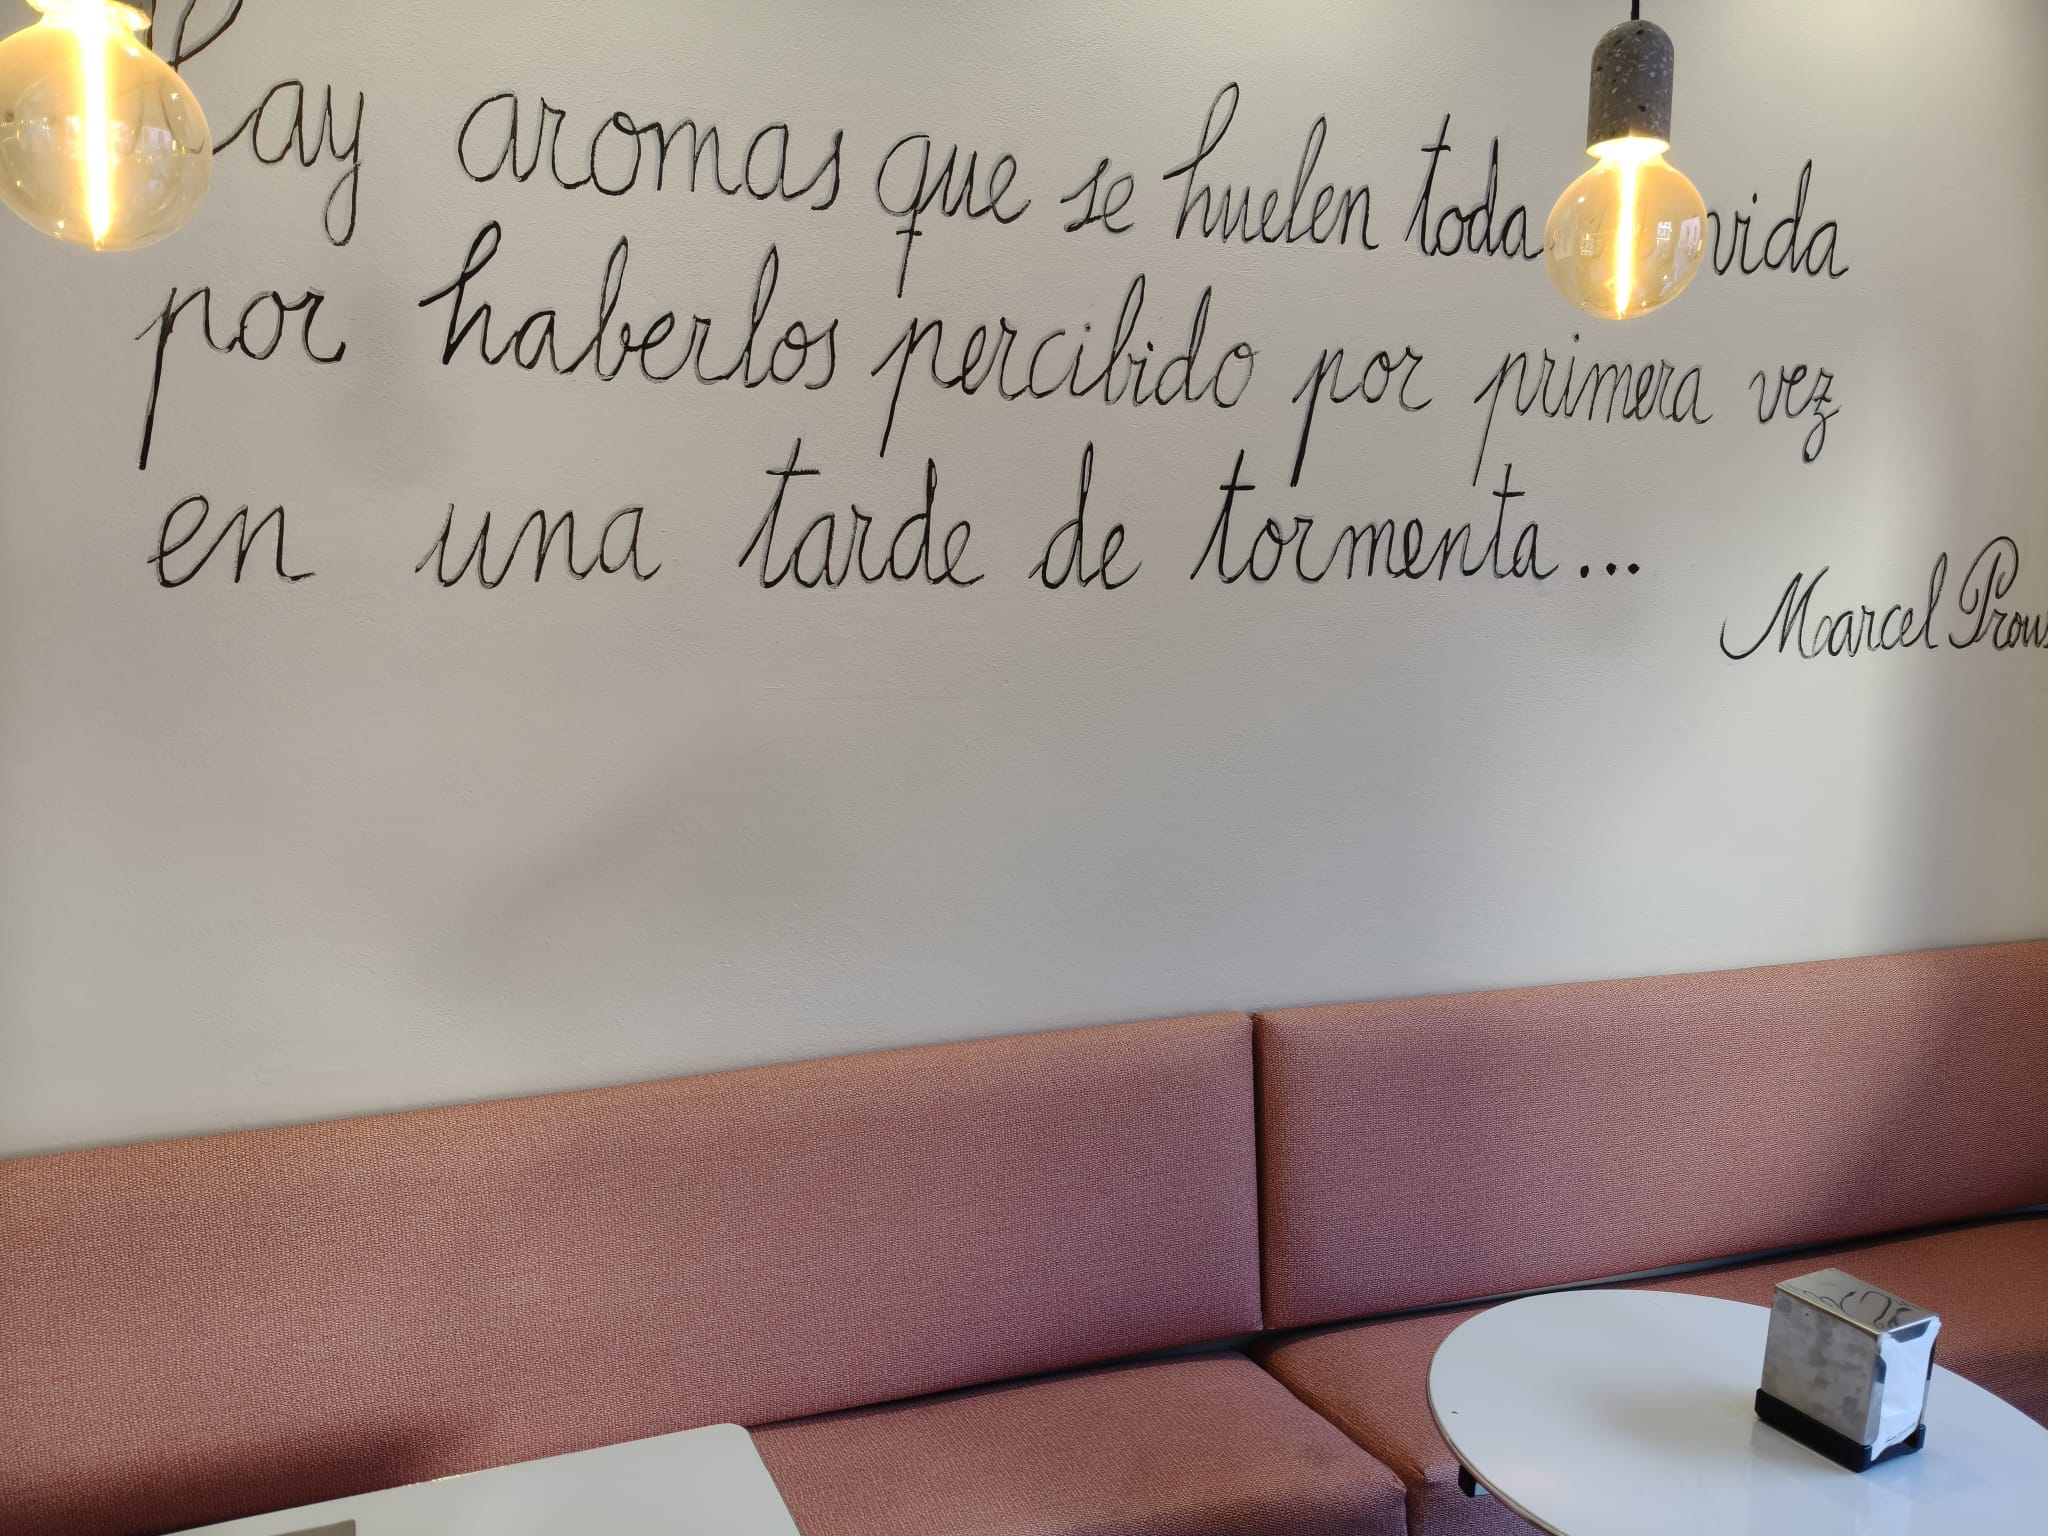 Hay aromas que se huelen toda la vida
por haberlos percibido por primera vez
en una tarde de tormenta...
Marcel Prous